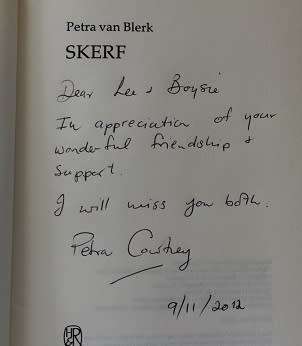 Petra van Blerk
SKERF
Dear Lee & Boysie
In appreciation of your
wonderful friendship &
support.
I will miss you both.
Petra Courtney
9/11/2012
H&R